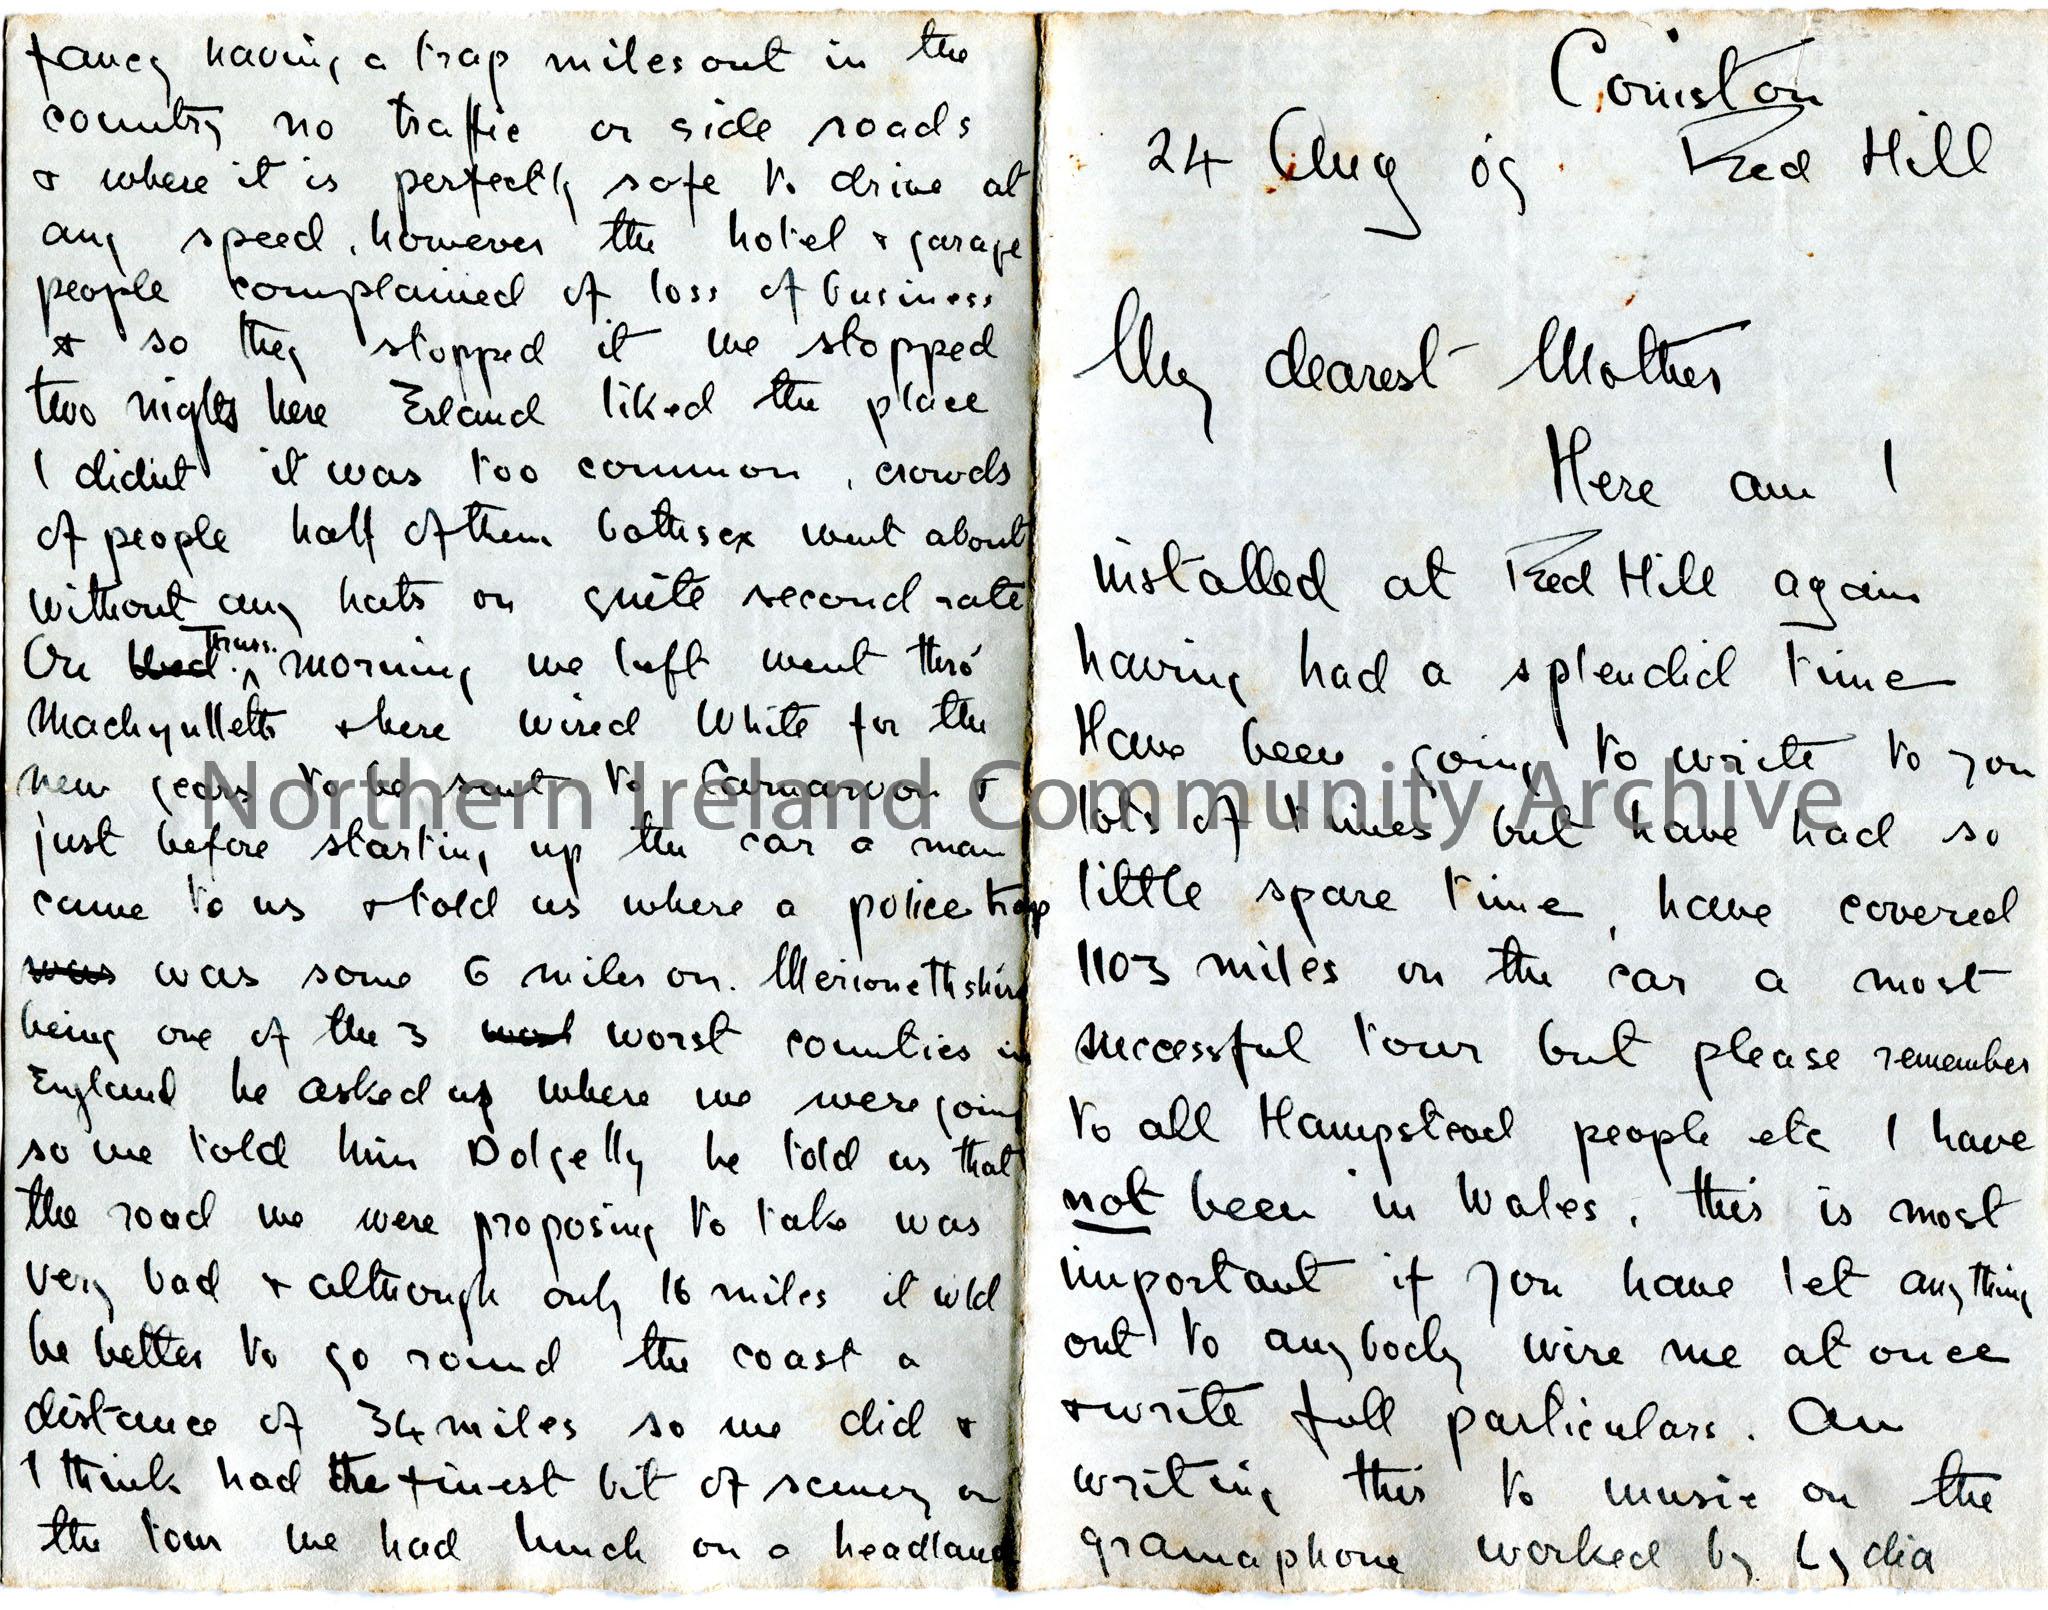 Coniston
24 Aug 09. Red Hill
My dearest Mother
Here am I
installed at Red Hill again
having had a splendid time
Have been going to write to you
lots of times but have had so
little spare time, have covered
1103 miles on the car a most
successful tour but please remember
to all Hampstead people etc I have
not been in Wales, this is most
important if you have let anything
out to anybody wire me at once
& write full particulars. Am
writing this to music on the
gramaphone worked by Lydia
fancy having a trap miles out in the
country no traffic or side roads
& where it is perfectly safe to drive at
any speed, however the hotel & garage
people complained of loss of business
& so they stopped it we stopped
two nights here Erland liked the place
I didnt it was too common, crowds
of people half of them both sex went about
without any hats on quite second rate
On Wed. Thurs. morning we left went thro'
Machynlleth & here wired White for the
new gears to be sent to Carnarvon &
just before starting up the car a man
came to us & told us where a police trap
was was some 6 miles on. Merionethshire
being one of the 3 worst counties in
England he asked us where we were going
so we told him Dolgelly he told us that
the road we were proposing to take was
very bad & although only 16 miles it wld
be better to go round the coast a
distance of 34 miles so we did &
I think had the finest bit of scenery on
the tour we had lunch on a headland
Northern Ireland Community Archive